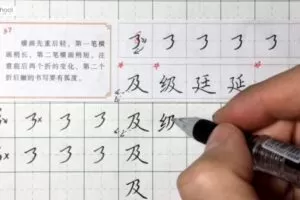 横画先重后轻，第一笔横
画稍长，第二笔横画稍短，注
意前后两个折的变化，第二个
折后撇的书写要有弧度。
㇋ ㇋ ㇋ ㇋ ㇋
及 级 廷 延
㇋ ㇋ ㇋ ㇋ 及 级
㇋ ㇋ ㇋ ㇋ 及
及